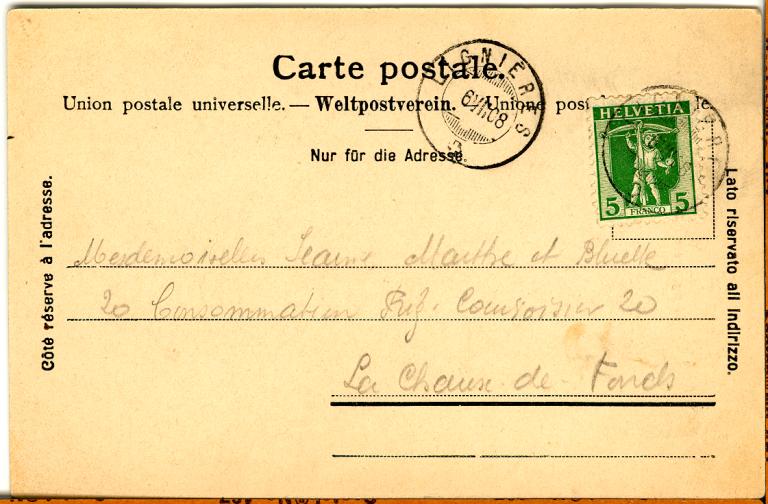 Carte postale.
Union postale universelle. — Weltpostverein. — Unione pos le
Nur für die Adresse.
LIGNIÈRES
6 VII 08
HELVETIA
5 FRANCO 5
Côté réservé à l'adresse.
Lato riservato all indirizzo.
Mesdemoiselles Jeanne Marthe et Bluette
20 Consommation Courvoisier 20
La Chaux-de-Fonds